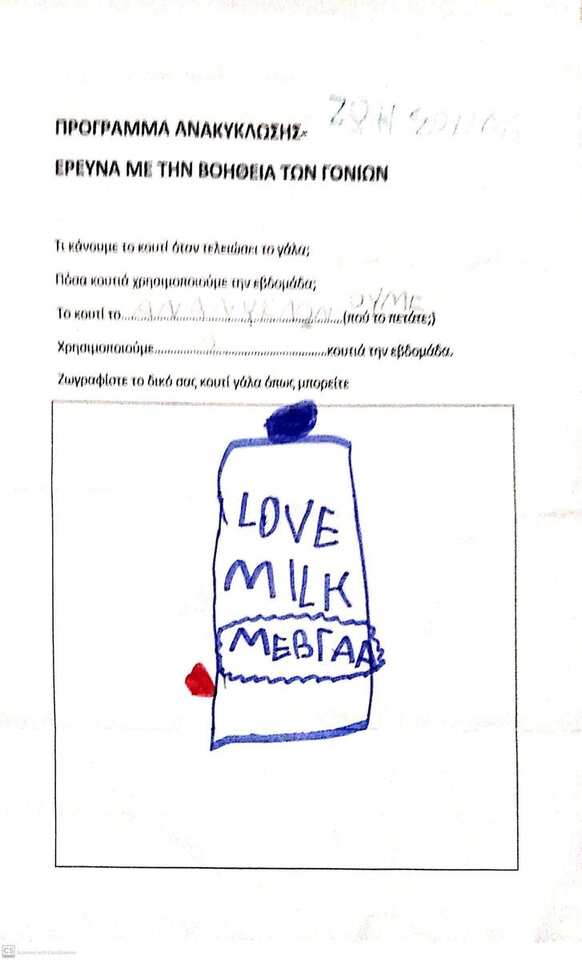 ΠΡΟΓΡΑΜΜΑ ΑΝΑΚΥΚΛΩΣΗΣ-
ΕΡΕΥΝΑ ΜΕ ΤΗΝ ΒΟΗΘΕΙΑ ΤΩΝ ΓΟΝΙΩΝ
Τι κάνουμε το κουτί όταν τελειώσει το γάλα;
Πόσα κουτιά χρησιμοποιούμε την εβδομάδα;
Το κουτί το (πού το πετάτε;)
Χρησιμοποιούμε κουτιά την εβδομάδα.
Ζωγραφίστε το δικό σας κουτί γάλα όπως μπορείτε
LOVE
MILK
ΜΕΒΓΑΛ
CS Scanned with CamScanner